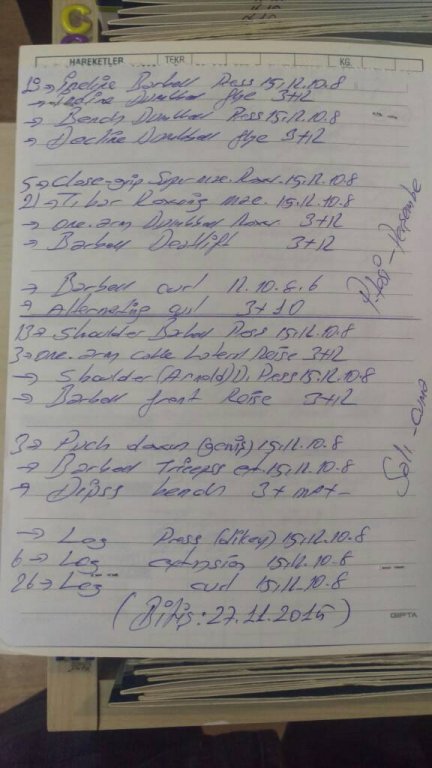 HAREKETLER TEKR KG
19→ İncline Barbell Press 15.12.10.8
→ İncline Dumbbell flye 3*12
→ Bench Dumbbell Press 15.12.10.8
→ Decline Dumbbell flye 3*12
5→ Close-grip 15.12.10.8
21→ T. bar Rowing 15.12.10.8
→ one.arm Dumbbell 3*12
→ Barbell Deatlift 3*12
→ Barbell curl 12.10.8.6
→ Alterneting curl 3*10
Ptesi-Perşembe
13→ Shoulder Barbell Press 15.12.10.8
3→ one.arm cable Lateral Raise 3*12
→ Shoulder (Arnold) D. Press 15.12.10.8
→ Barbell front Raise 3*12
3→ Puch down (geniş) 15.12.10.8
→ Barbell Tricepss 15.12.10.8
→ Dipss bench 3*
Salı-cuma
→ Leg Press (dikey) 15.12.10.8
6→ Leg extension 15.12.10.8
26→ Leg curl 15.12.10.8
(Bitiş: 27.11.2015)
GIPTA